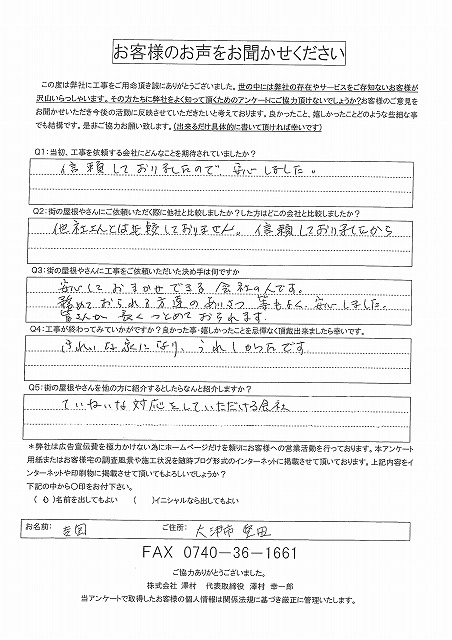 お客様のお声をお聞かせください
この度は弊社に工事をご用命頂き誠にありがとうございました。世の中には弊社の存在やサービスをご存知ないお客様が
沢山いらっしゃいます。その方たちに弊社をよく知って頂くためのアンケートにご協力頂けないでしょうか?お客様のご意見を
お聞かせいただき今後の活動に反映させていただきたいと考えております。良かったこと、嬉しかったことどのような些細な事
でも結構です。是非ご協力お願い致します。(出来るだけ具体的に書いて頂ければ幸いです)
Q1:当初、工事を依頼する会社にどんなことを期待されていましたか?
信頼しておりましたので 安心しました。
Q2:街の屋根やさんにご依頼いただく際に他社と比較しましたか?した方はどこの会社と比較しましたか?
他社さんとは比較しておりません。信頼しておりましたから
Q3:街の屋根やさんに工事をご依頼いただいた決め手は何ですか
安心して おまかせできる 会社の人です。
務めておられる方達の あいさつ 等もよく、安心しました。
皆さんが 長くつとめておられます
Q4:工事が終わってみていかがですか?良かった事・嬉しかったことを忌憚なく頂戴出来ましたら幸いです。
きれいな家になり、うれしかったです
Q5:街の屋根やさんを他の方に紹介するとしたらなんと紹介しますか?
ていねいな対応をしていただける会社
*弊社は広告宣伝費を極力かけない為にホームページだけを頼りにお客様への営業活動を行っております。本アンケート
用紙またはお客様宅の調査風景や施工状況を随時ブログ形式のインターネットに掲載させて頂いております。上記内容をイ
ンターネットや印刷物に掲載させて頂いてもよろしいでしょうか?
下記の中から〇印をお付下さい。
( )名前を出してもよい ( )イニシャルなら出してもよい
お名前: ご住所: 大津市 堅田
FAX 0740-36-1661
ご協力ありがとうございました。
株式会社 澤村 代表取締役 澤村 幸一郎
当アンケートで取得したお客様の個人情報は関係法規に基づき厳正に管理いたします。